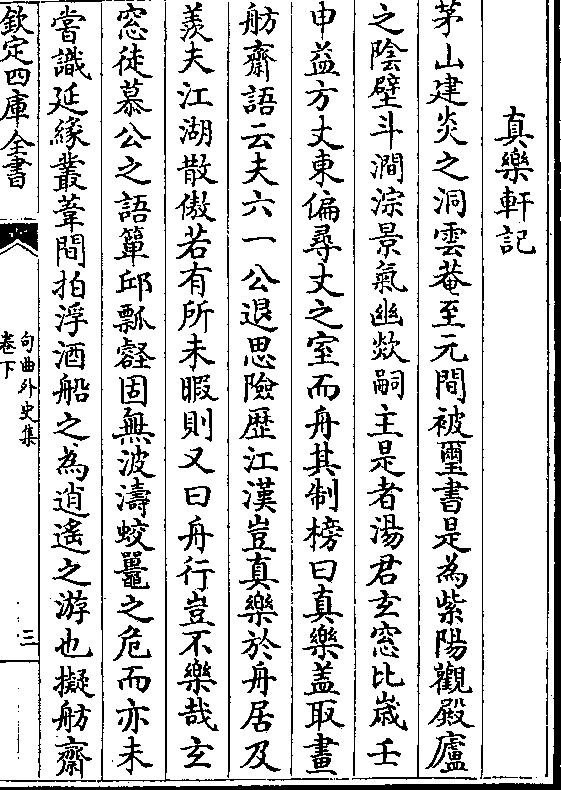 真樂軒記
茅山建炎之洞雲菴至元間被璽書是為紫陽觀殿廬
之陰壁斗澗淙景氣幽欻嗣主是者湯君玄窓比歲壬
申益方丈東偏尋丈之室而舟其制榜曰真樂蓋取畫
舫齋語云夫六一公退思險歴江漢豈真樂於舟居及
羨夫江湖散傲若有所未暇則又曰舟行豈不樂哉玄
窓徒慕公之語簞邱瓢壑固無波濤蛟鼉之危而亦未
嘗識延緣叢葦間拍浮酒船之為逍遙之游也擬舫齋
欽定四庫全書
句曲外史集
卷下
三